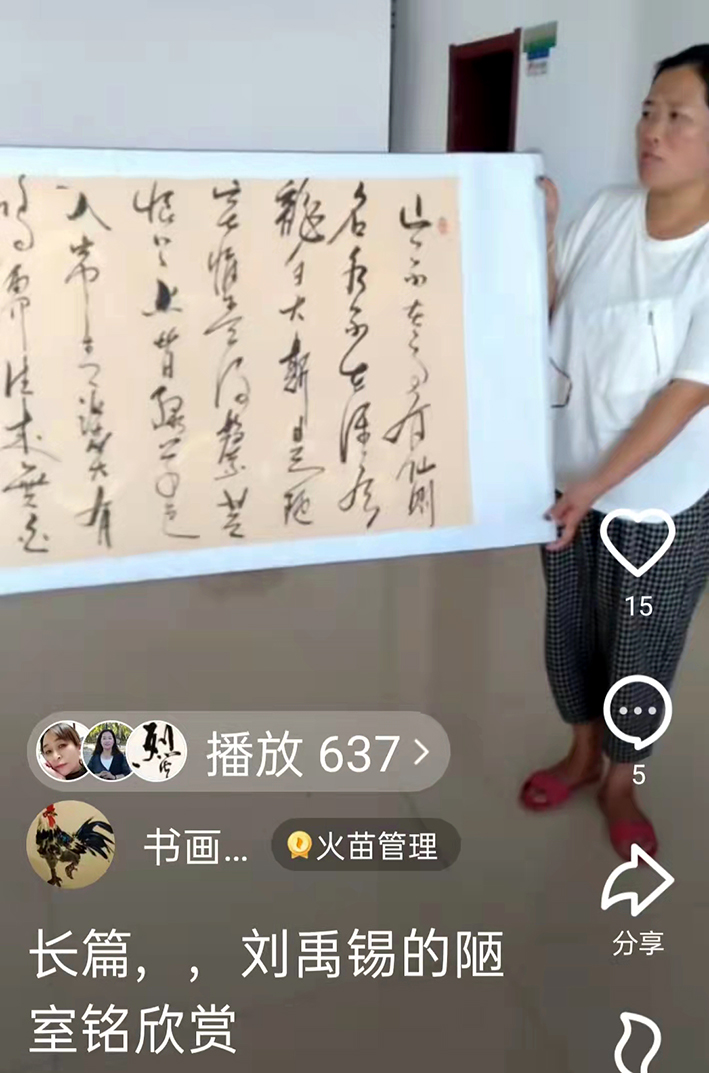 山不在高有仙則
名水不在深有
龍則斯是陋
室惟吾德馨苔
痕上階綠草色
入帘青談笑有
鴻儒往来無白
播放 637
书画...
火苗管理
长篇，，刘禹锡的陋
室铭欣赏
15
5
分享